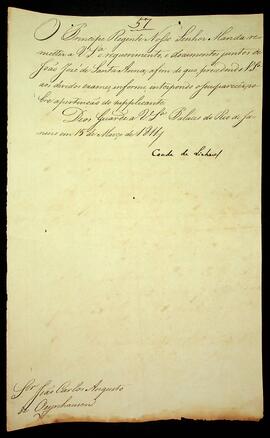 57
O Principe Regente Nosso Senhor Manda re-
metter a V. Sª. o requerimento, e documentos juntos de
João José de Santa Anna, a fim de que procedendo V. Sª.
aos devidos exames, informe interpondo o seu parecer so-
bre a pertenção do supplicante.
Deos Guarde a V. Sª. Palacio do Rio de Ja-
neiro em 15 de Março de 1811
Conde de Linhares
Snr. João Carlos Augusto
de Oeynhausen